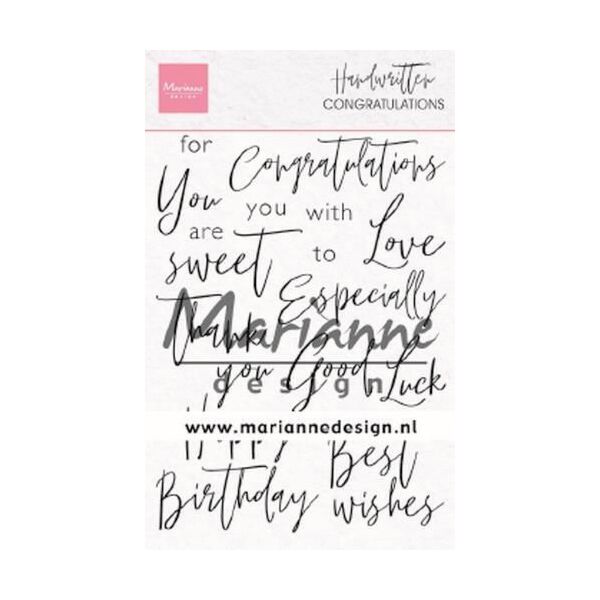 Marianne
DESIGN
Handwritten
CONGRATULATIONS
for
Congratulations
You
you with
are
Love
sweet
to
Especially
Thank
Marianne
you
Good
design
Luck
Happy
www.mariannedesign.nl
Best
Birthday
wishes